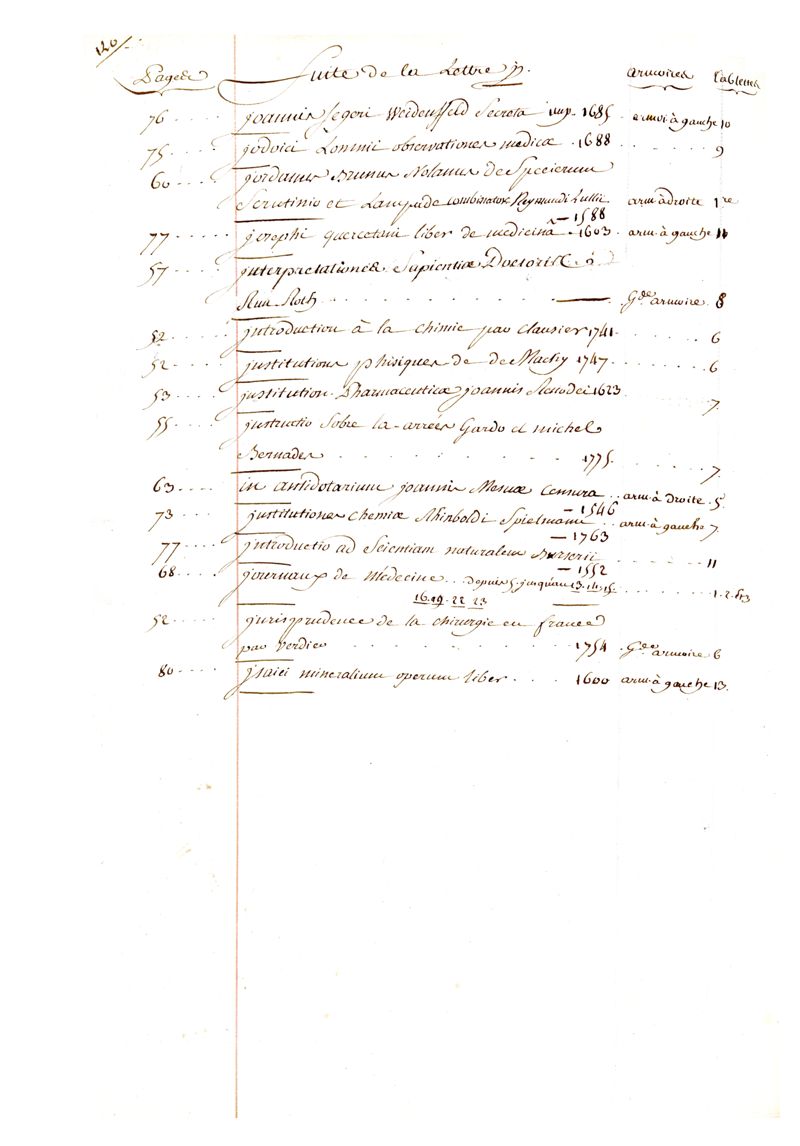 120
Pages Suite de la Lettre J. armoires Tablettes
76 .... joannis Segeri Weidenffeld Secreta imp. 1685 armoi à gauche 10
75 .... jodoici Lommii observationes medicæ . 1688 ...... 9
60 .... jordanus Brunus Nolanus de Specierum
Scrutinio et Lampade combinator. Reymundi Lullii arm. à droite 1re
— 1588
77 .... josephi quercetani liber de medicina . 1603 arm. à gauche 11
57 .... jnterpretationes Sapientiæ Doctoris
............ — Gde armoire. 8
52 .... jntroduction à la chimie par clausier 1741 ....... 6
52 .... jnstitutions phisiques de de Machy 1747 ....... 6
53 .... jnstitution. Pharmaceuticæ joannis Renodei 1623 ....... 7.
55 .... jnstructio Sobre la arrées Gardo et michel
Bernades ......... 1775 ....... 7.
63 .... in antidotarium joannis Mesuæ Censura .. arm. à Droite . 5.
— 1546
73 .... jnstitutiones Chemiæ Rhinboldi Spielmann .. arm. à gauche 7
— 1763
77 .... jntroductio ad Scientiam naturalem ....... 11
— 1552
68 .... journaux de Médecine .. depuis 5. jusqu'au 13. 14. 15. ....... 1. 2. et 3
16. 19. 22 23
52 .... jurisprudence de la chirurgie en france
par Verdier ......... 1754 Gde armoire 6
80 .... jsaici mineralium operum liber .... 1600 arm. à gauche 13.